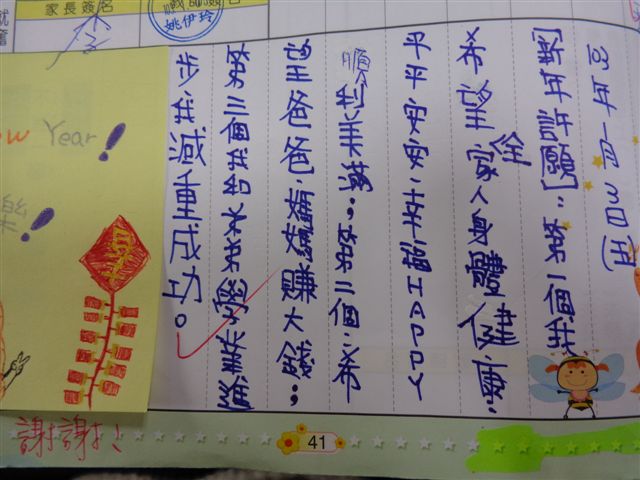 [新年許願]：第一個我
希望全家人身體健康、
平平安安、幸福HAPPY
順利美滿。第二個希
望爸爸、媽媽賺大錢。
第三個我
步我減重成功。
家長簽名
姚伊玲
Year!
樂!
謝謝!
41